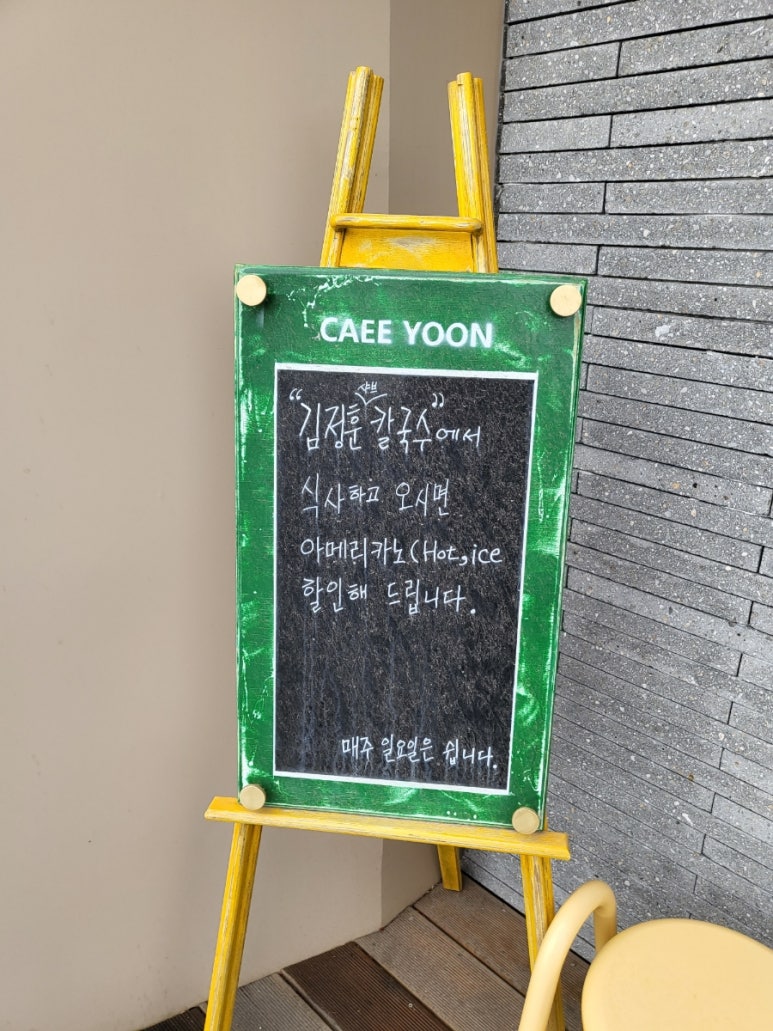 CAEE YOON
샤브
"김정훈 칼국수"에서
식사하고 오시면
아메리카노(Hot,ice
할인해 드립니다.
매주 일요일은 쉽니다.